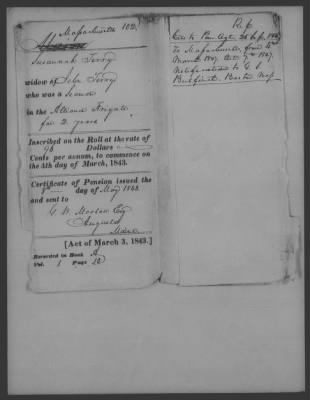 Massachusetts 102.
Susannah Terry
widow of John Terry
who was a Seaman
in the Alliance Frigate
for 2 years
Inscribed on the Roll at the rate of
96 Dollars
Cents per annum, to commence on
the 4th day of March, 1843.
Certificate of Pension issued the
8 day of May 1843
and sent to
G. W. Morton Esq
Augusta
Maine
[Act of March 3, 1843.]
Recorded in Book A
Vol. 1 Page
to Pen Agt 26 Sept. 1847
To Massachusetts, from 4th
March 1847.
Notification to
Boston Mass